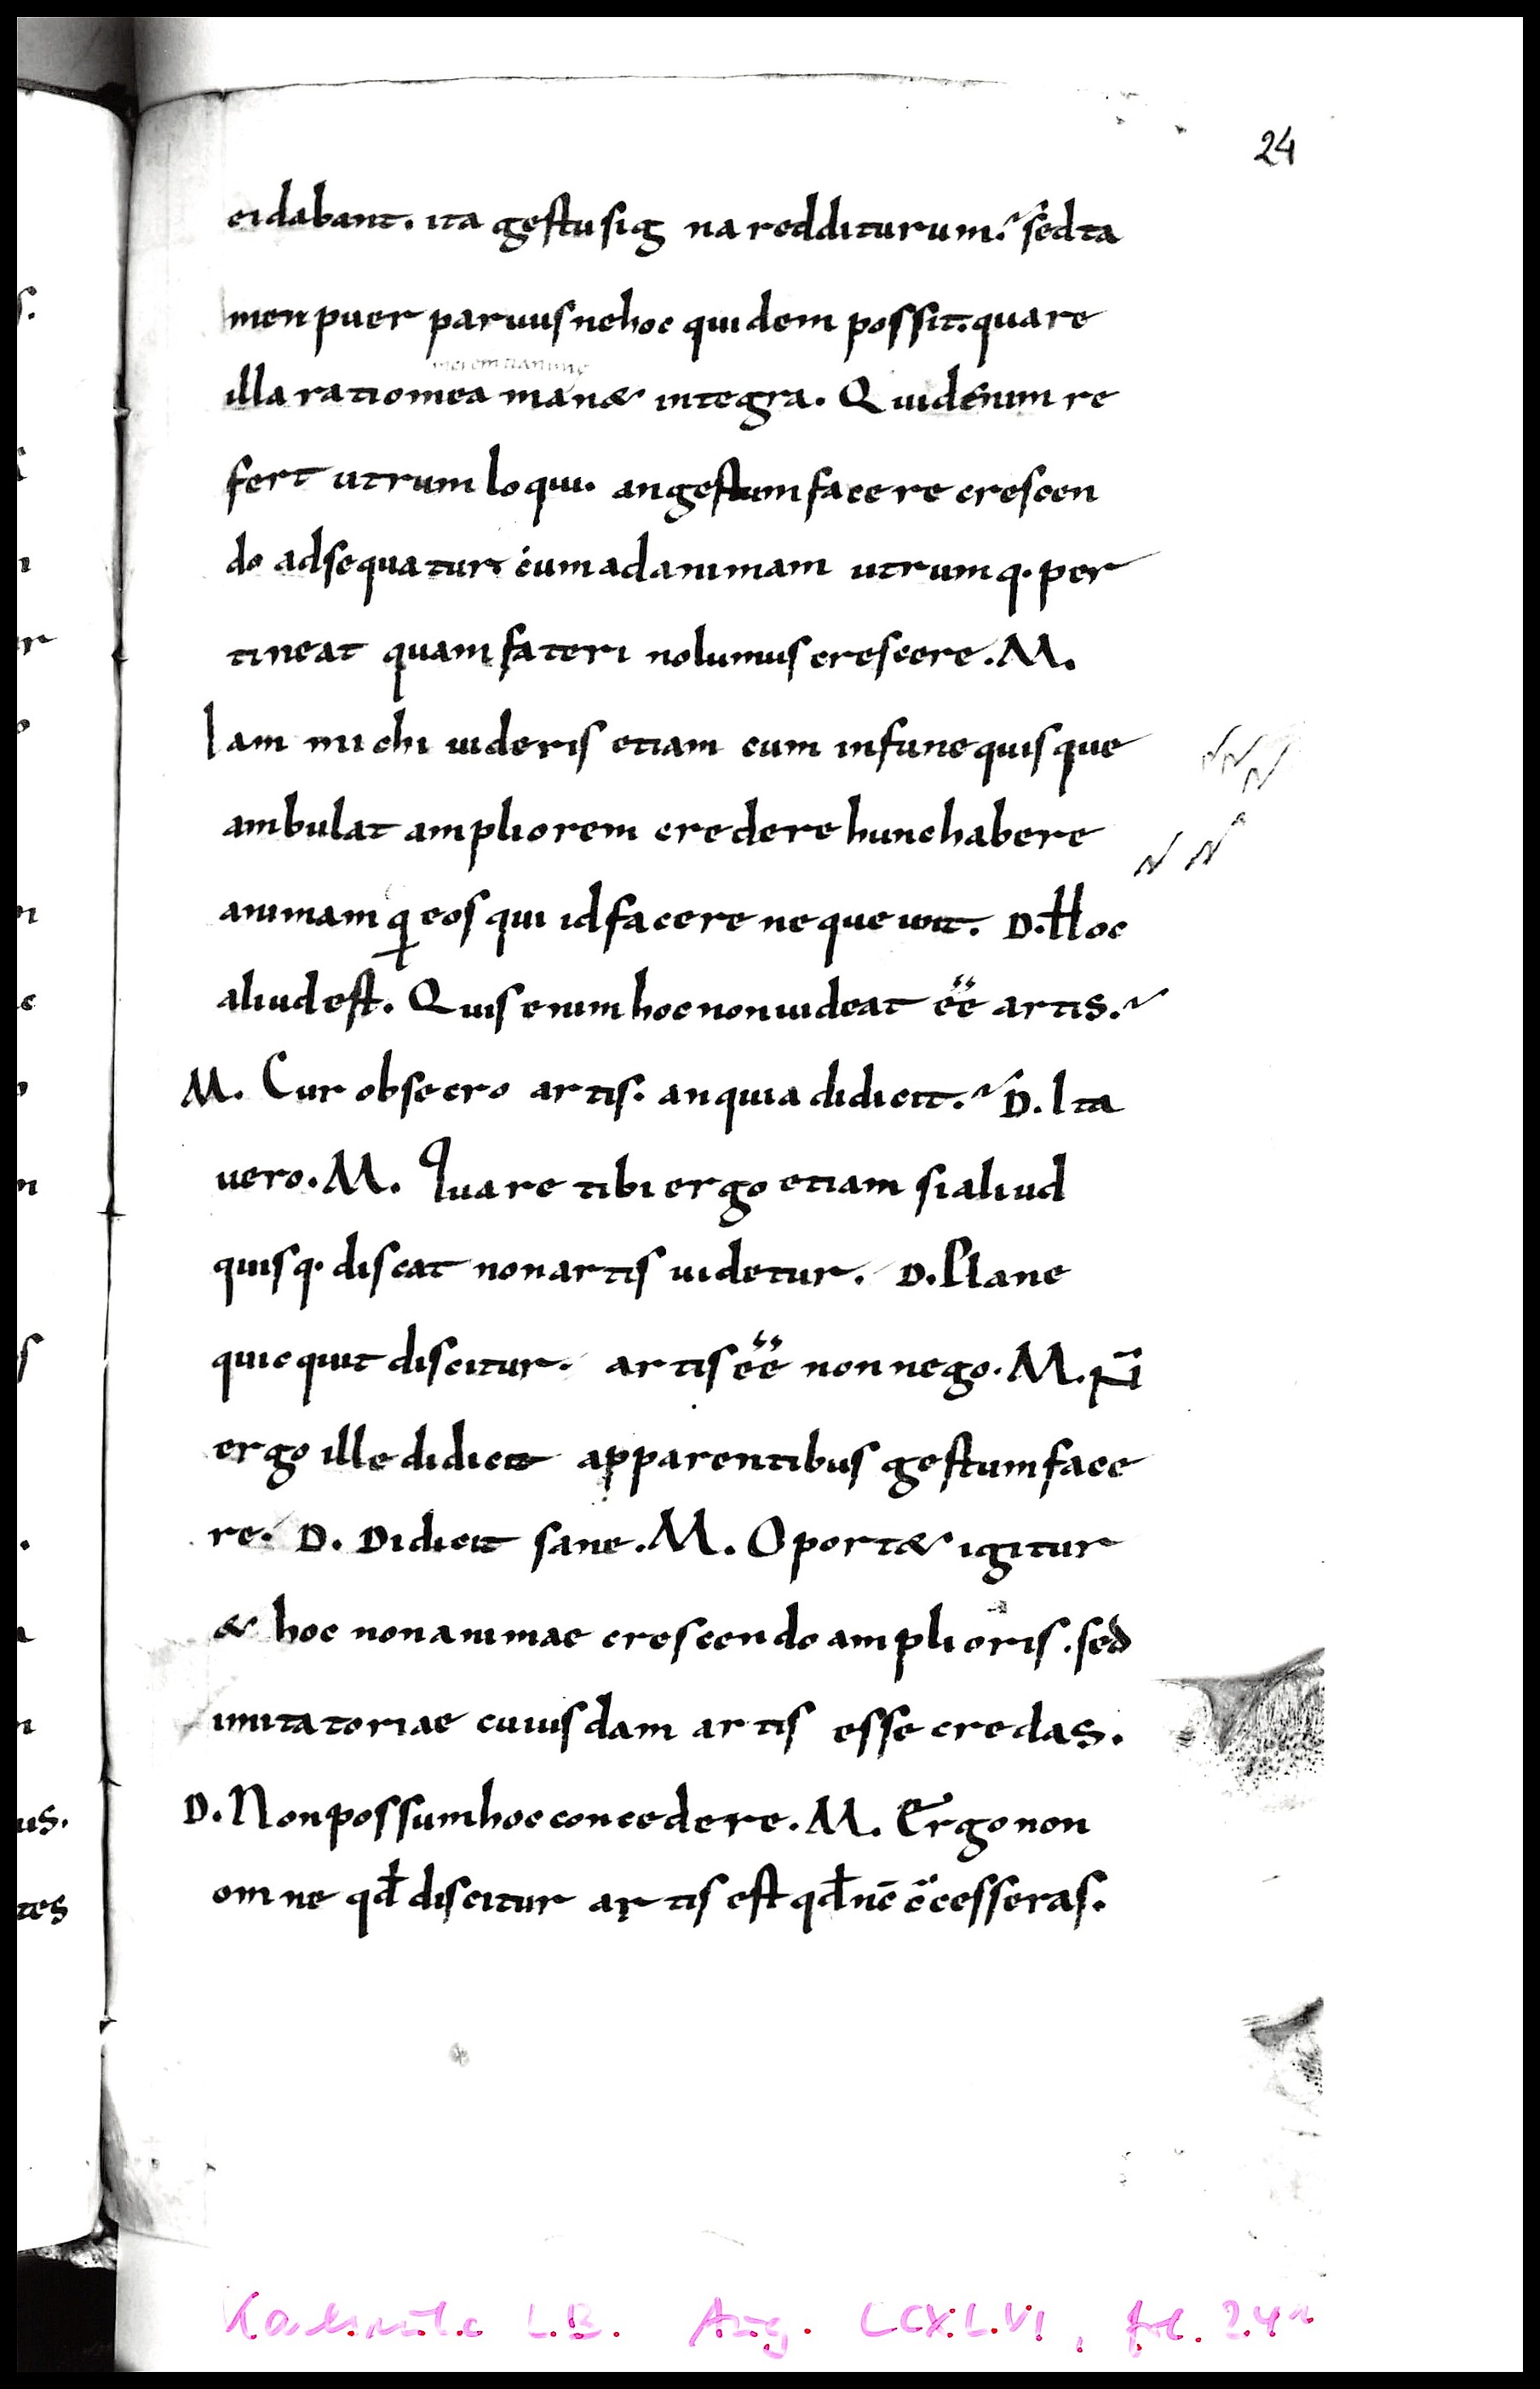 24
ei dabant. ita gestu sig na redditurum. sed ta
men puer paruus ne hoc quidem possit. quare
illa ratio mea man& integra. Quid enim re
fert utrum loqui. an gestum facere crescen
do adsequatur. cum ad animam utrumq. per
tineat quam fateri nolumus crescere. M.
Iam michi uideris etiam cum in fune quisque
ambulat ampliorem credere hunc habere
animam q eos qui id facere nequeunt. D. Hoc
aliud est. Quis enim hoc non uideat ee artis.
M. Cur obsecro artis. an quia didicit. D. Ita
uero. M. Quare tibi ergo etiam si aliud
quisq. discat non artis uidetur. D. Plane
quicquit discitur. artis ee non nego. M. Ñ
ergo ille didicit a parentibus gestum face
re. D. Didicit sane. M. Oport& igitur
& hoc non animae crescendo amplioris. sed
imitatoriae cuiusdam artis esse credas.
D. Non possum hoc concedere. M. Ergo non
omne qđ discitur artis est qđ nc̄ c̄cesseras.
Karlsruhe L.B. Aug. CCXLVI, fol. 24r